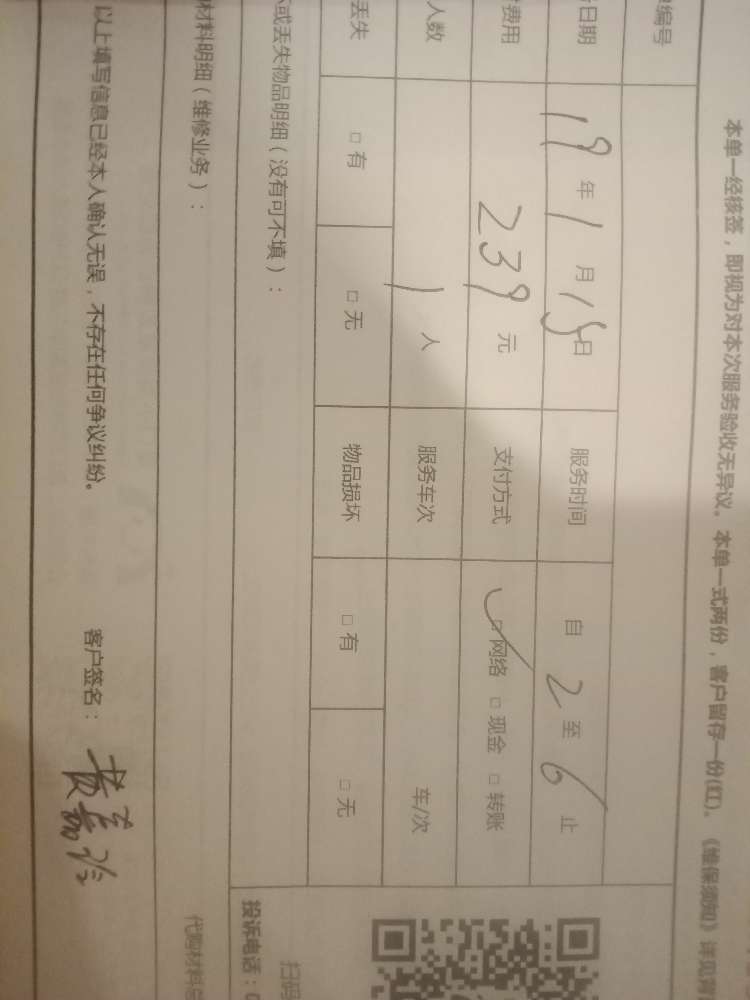 本单一经核签，即视为对本次服务验收无异议。本单一式两份，客户留存一份(红)。《维保须知》详见背
编号
日期 19年1月15日 服务时间 自 2 至 6 止
费用 239元 支付方式 □网络 □现金 □转账
人数 1人 服务车次 车/次
丢失 □有 □无 物品损坏 □有 □无
或丢失物品明细（没有可不填）：
扫码
投诉电话：0
材料明细（维修业务）：
代购材料总
以上填写信息已经本人确认无误，不存在任何争议纠纷。 客户签名：